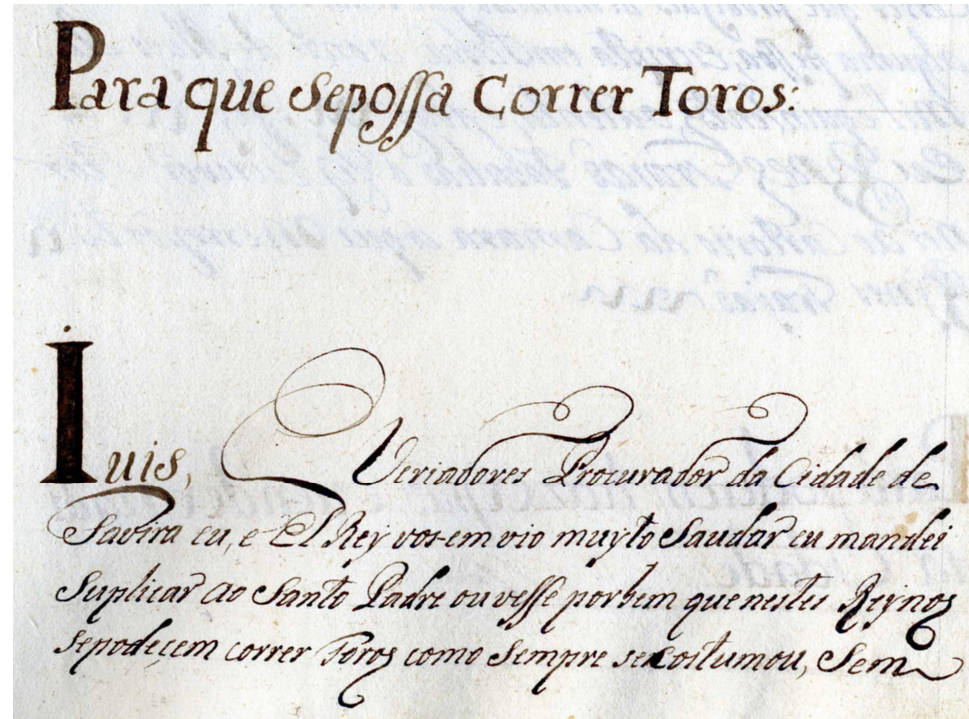 Para que sepossa Correr Toros:
Iuis, Veriadores Procurador da Cidade de
Tavira eu, e El Rey vos em vio muyto Saudar eu mandei
Suplicar ao Santo Padre ouvesse porbem que nestes Reynos
sepodeçem correr Toros como Sempre secostumou, Sem